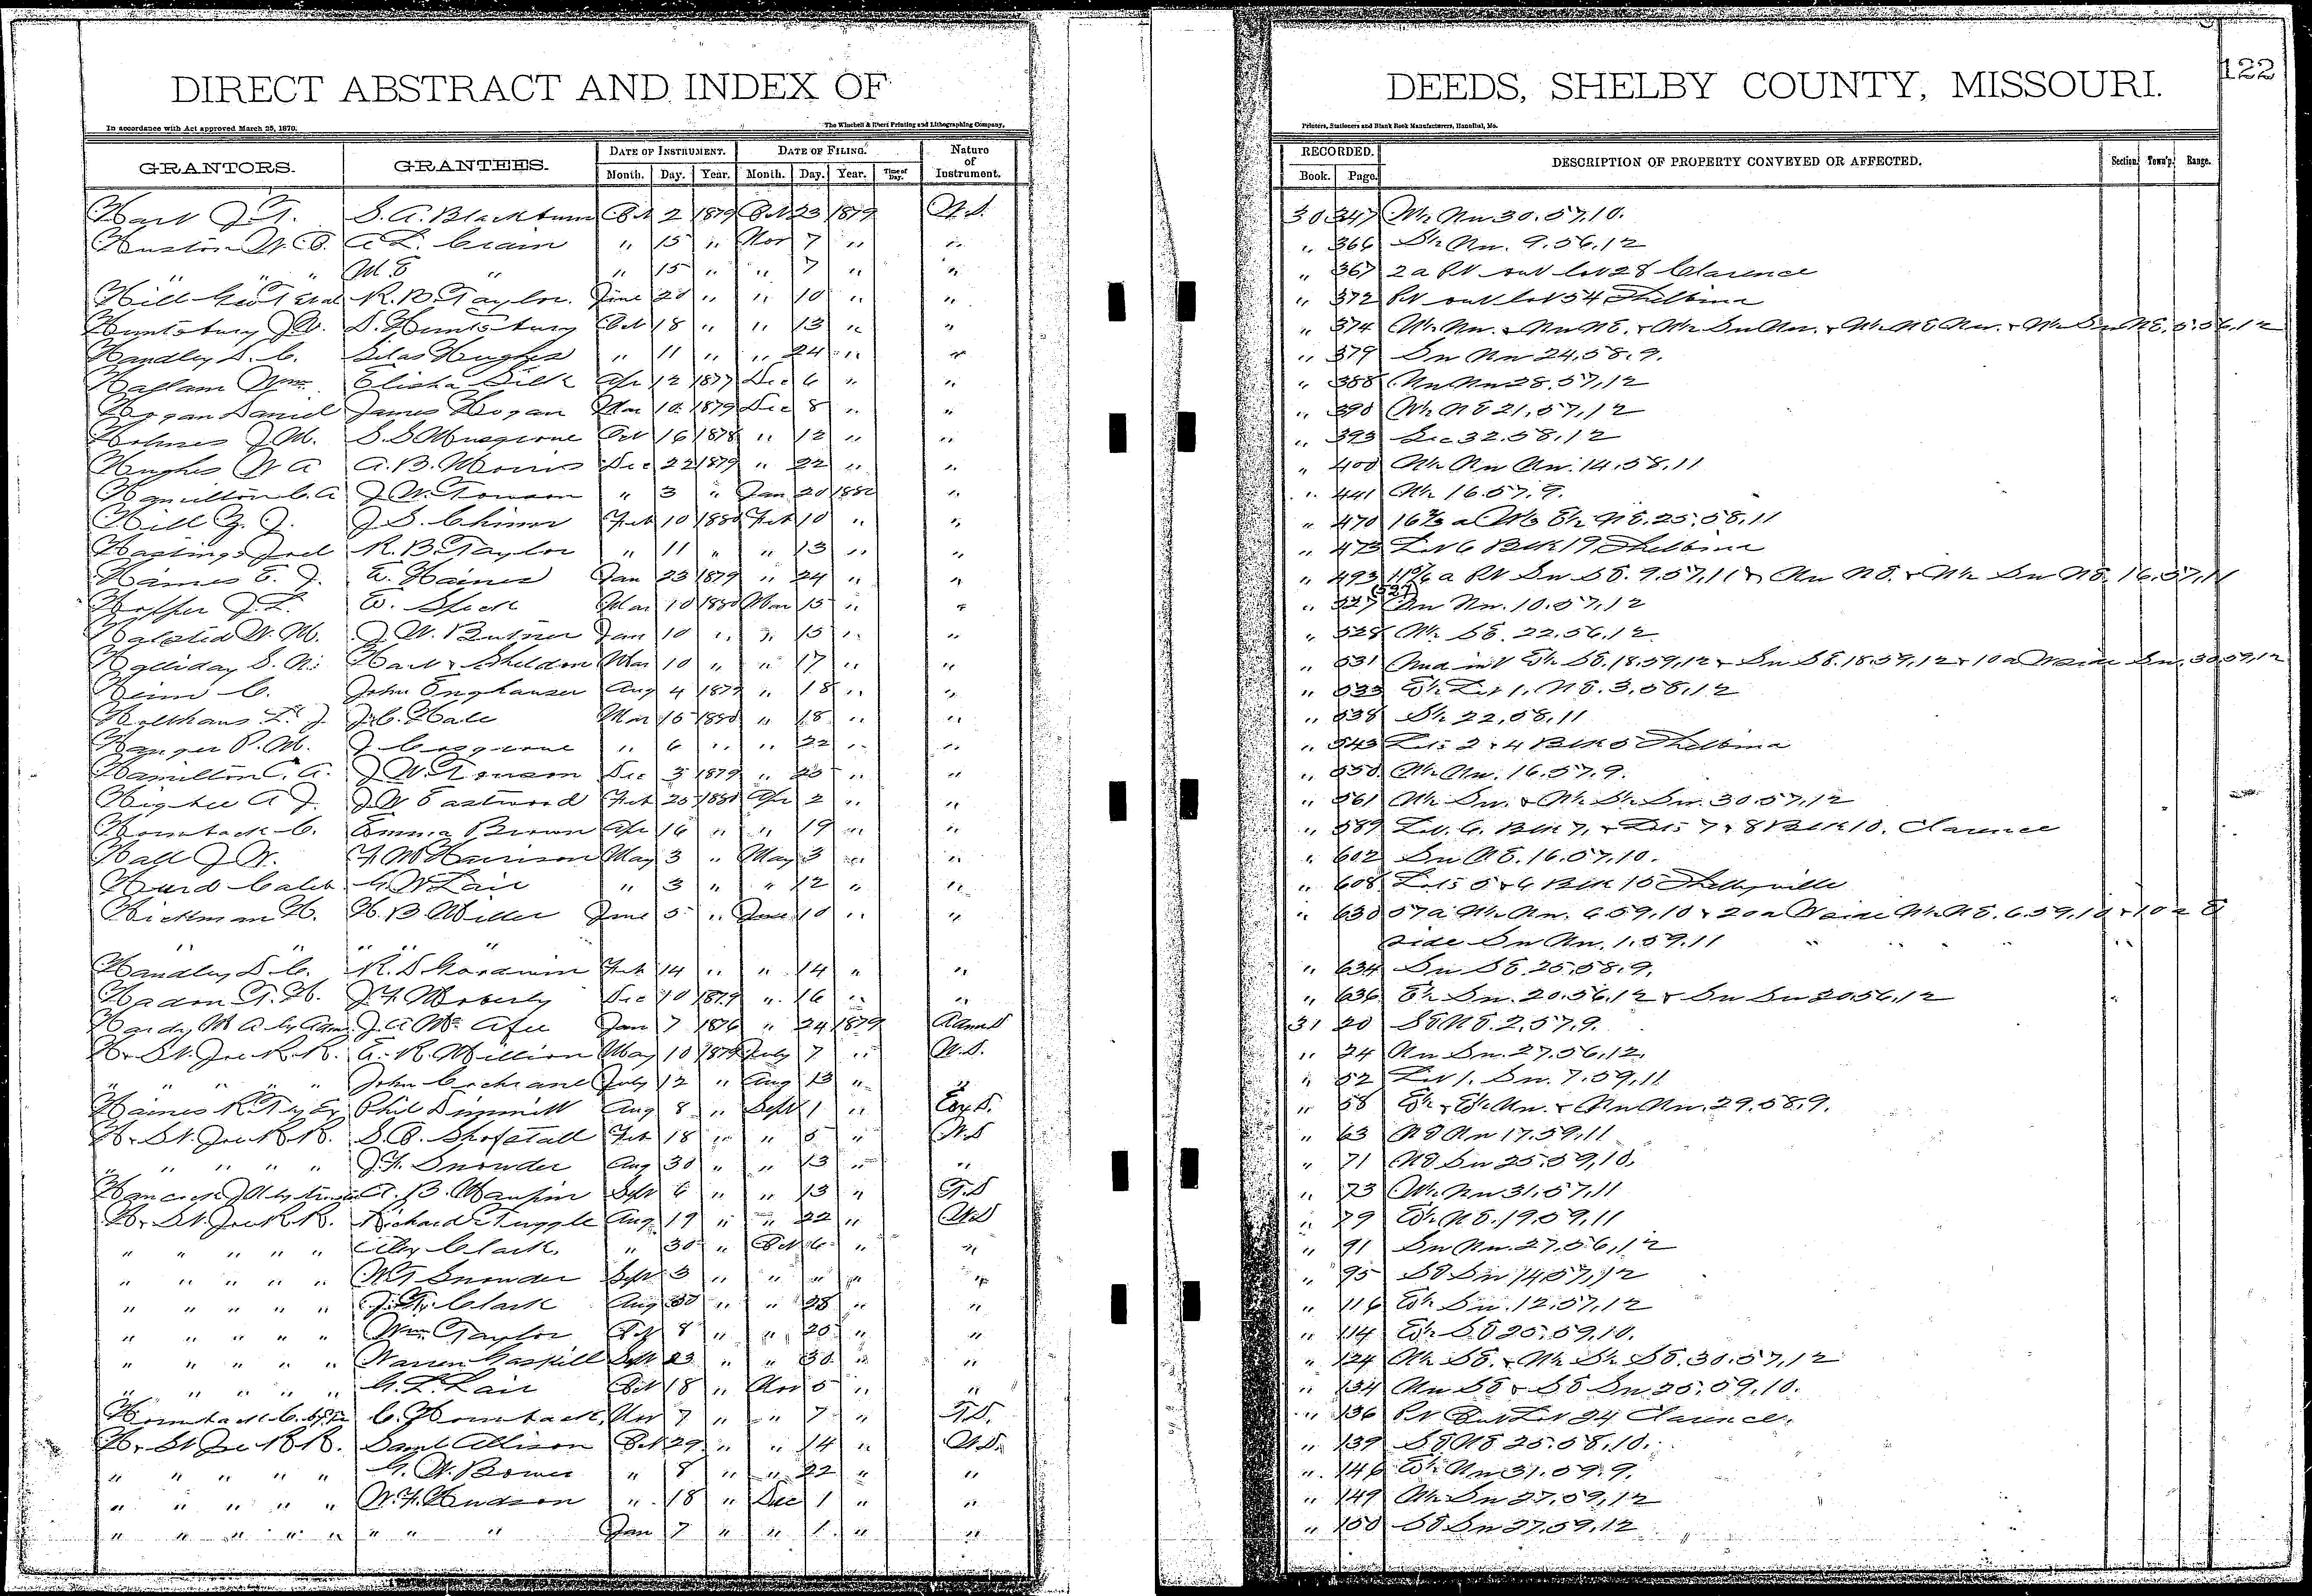 122
DIRECT ABSTRACT AND INDEX OF DEEDS, SHELBY COUNTY, MISSOURI.
In accordance with Act approved March 25, 1870. The Winchell & Ebert Printing and Lithographing Company, Printers, Stationers and Blank Book Manufacturers, Hannibal, Mo.
GRANTORS. GRANTEES. DATE OF INSTRUMENT. DATE OF FILING. Nature of Instrument. RECORDED. DESCRIPTION OF PROPERTY CONVEYED OR AFFECTED. Section. Town'p. Range.
Month. Day. Year. Month. Day. Year. Time of Day. Book. Page.
Hart J. T. S. A. Blackburn Oct 2 1879 Oct 23 1879 W.D. 30 347 Nw 30.57.10.
Huston W. C. A L. Crain " 15 " Nov 7 " " " 366 Nw. 9.56.12
" " " M. E " " 15 " " 7 " " " 367 2 a Pt out lot 28 Clarence
Hill Geo T et al R. B. Taylor. June 20 " " 10 " " " 372 Pt out lot 54 Shelbina
Huntsbury J. W. D. Huntsbury Oct 18 " " 13 " " " 374
Handley S. C. Silas Hughes " 11 " " 24 " " " 379 Sw Nw 24.58.9.
Haflam Wm. Elisha Silk Apr 12 1877 Dec 6 " " " 388 Nw Nw 28.57.12
Hogan Daniel James Hogan Mar 10 1879 Dec 8 " " " 390 NE 21.57.12
Holmes J. M. S. S Musgrove Oct 16 1878 " 12 " " " 393 Sec 32.58.12
Hughes W A A. B. Morris Dec 22 1879 " 22 " " " 400 Nw Nw. 14.58.11
Hamilton C. A J. W. Towson " 3 " Jan 20 1880 " " 441 16.57.9.
Hill G. J. J. S. Chinor Feb 10 1880 Feb 10 " " " 470 NE. 25.58.11
Hastings Joel R. B. Taylor " 11 " " 13 " " " 473 Lot 6 Blk 19 Shelbina
Haines E. J. E. Haines Jan 23 1879 " 24 " " " 493 Pt Sw SE. 9.57.11 & Nw NE. & Sw NE. 16.57.11
Hopper J. L. W. Speck Mar 10 1880 Mar 15 " " " 527 (527) Nw. 10.57.12
Halsted W. M. J. W. Butner Jan 10 " " 15 " " " 528 SE. 22.56.12
Holliday S. N. Hart & Sheldon Mar 10 " " 17 " " " 531 Und int SE. 18.59.12 & Sw SE. 18.59.12 & 10 a W side Sw. 30.59.12
Heim C. John Enghauser Aug 4 1879 " 18 " " " 533 Lot 1. NE. 3.58.12
Holthaus L. J. J. C. Hale Mar 15 1880 " 18 " " " 538 22.58.11
Hanger P. M. J Cosgrove " 6 " " 22 " " " 543 Lots 2 & 4 Blk 5 Shelbina
Hamilton C. A. J. W. Towson Dec 3 1879 " 25 " " " 550 Nw. 16.57.9.
Higbee A J. J. W Eastwood Feb 25 1880 Apr 2 " " " 561 Sw. & Sw. 30.57.12
Hornback C. Emma Brown Apr 16 " " 19 " " " 589 Lot. 6. Blk 7, & Lots 7 & 8 Blk 10. Clarence
Hall J. W. F. M Harrison May 3 " May 3 " " " 602 Sw NE. 16.57.10.
Hurd Caleb G. W Lair " 3 " " 12 " " " 608 Lots 5 & 6 Blk 15 Shelbyville
Hickman H. H. B. Miller June 5 " June 10 " " " 630 57 a Nw. 6.59.10 & 20 a W side NE. 6.59.10 & 10 a E
" " " " " side Sw Nw. 1.59.11 " " "
Handley S. C. R. D Goodwin Feb 14 " " 14 " " " 634 Sw SE. 25.58.9.
Hadon T. H. J. F. Moberly Dec 10 1879 " 16 " " " 636 Sw. 20.56.12 & Sw Sw 20.56.12
Hardy M A by Adm. J. A Mc Afee Jan 7 1876 " 24 1879 Adm D 31 20 SE NE. 2.57.9.
H & St. Joe R.R. E. R. Million May 10 1879 July 7 " W.D. " 24 Nw Sw. 27.56.12.
" " " " " John Cochrane July 12 " Aug 13 " " " 52 Lot 1. Sw. 7.59.11
Haines R. T by Ex Phil Dimmitt Aug 8 " Sept 1 " Ex D. " 58 Nw. & Nw Nw. 29.58.9.
H & St. Joe R.R. S. B. Shofstall Feb 18 " " 5 " W.D " 63 NE Nw 17.59.11
" " " " " J. F. Snowder Aug 30 " " 13 " " " 71 NE Sw 25.59.10.
Hancock J W by trustee A. B. Maupin Sept 6 " " 13 " T.D " 73 Nw 31.57.11
H & St. Joe R.R. Richard Tuggle Aug 19 " " 22 " W.D " 79 NE. 19.59.11
" " " " " Clark. " 30 " Oct 6 " " " 91 Sw Nw. 27.56.12
" " " " " W. T Snowder Sept 3 " " " " " " 95 SE Sw 14.57.12
" " " " " Clark Aug 30 " " 28 " " " 116 Sw. 12.57.12
" " " " " Wm Taylor Oct 8 " " 20 " " " 114 SE 25.59.10.
" " " " " Warren Gaskill Sept 23 " " 30 " " " 124 SE. & SE. 30.57.12
" " " " " G. L. Lair Oct 18 " Nov 5 " " " 134 Nw SE & SE Sw 25.59.10.
Hornback C. by Tr C. Hornback, Nov 7 " " 7 " T.D. " 136 Pt Out Lot 24 Clarence.
H & St Joe R.R. Saml Allison Oct 29 " " 14 " W.D. " 139 SE NE 25.58.10.
" " " " " G. W. Bower " 8 " " 22 " " " 146 Nw 31.59.9.
" " " " " W. F. Hudson " 18 " Dec 1 " " " 149 Sw 27.59.12
" " " " " " " " Jan 7 " " 1 " " " 150 SE Sw 27.59.12